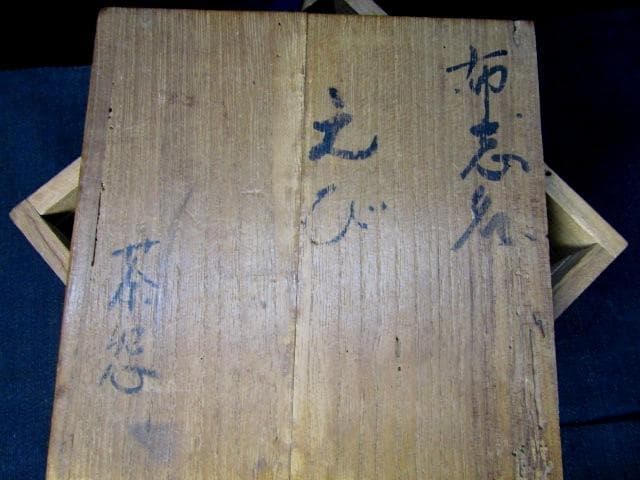 布志名
えび
茶碗